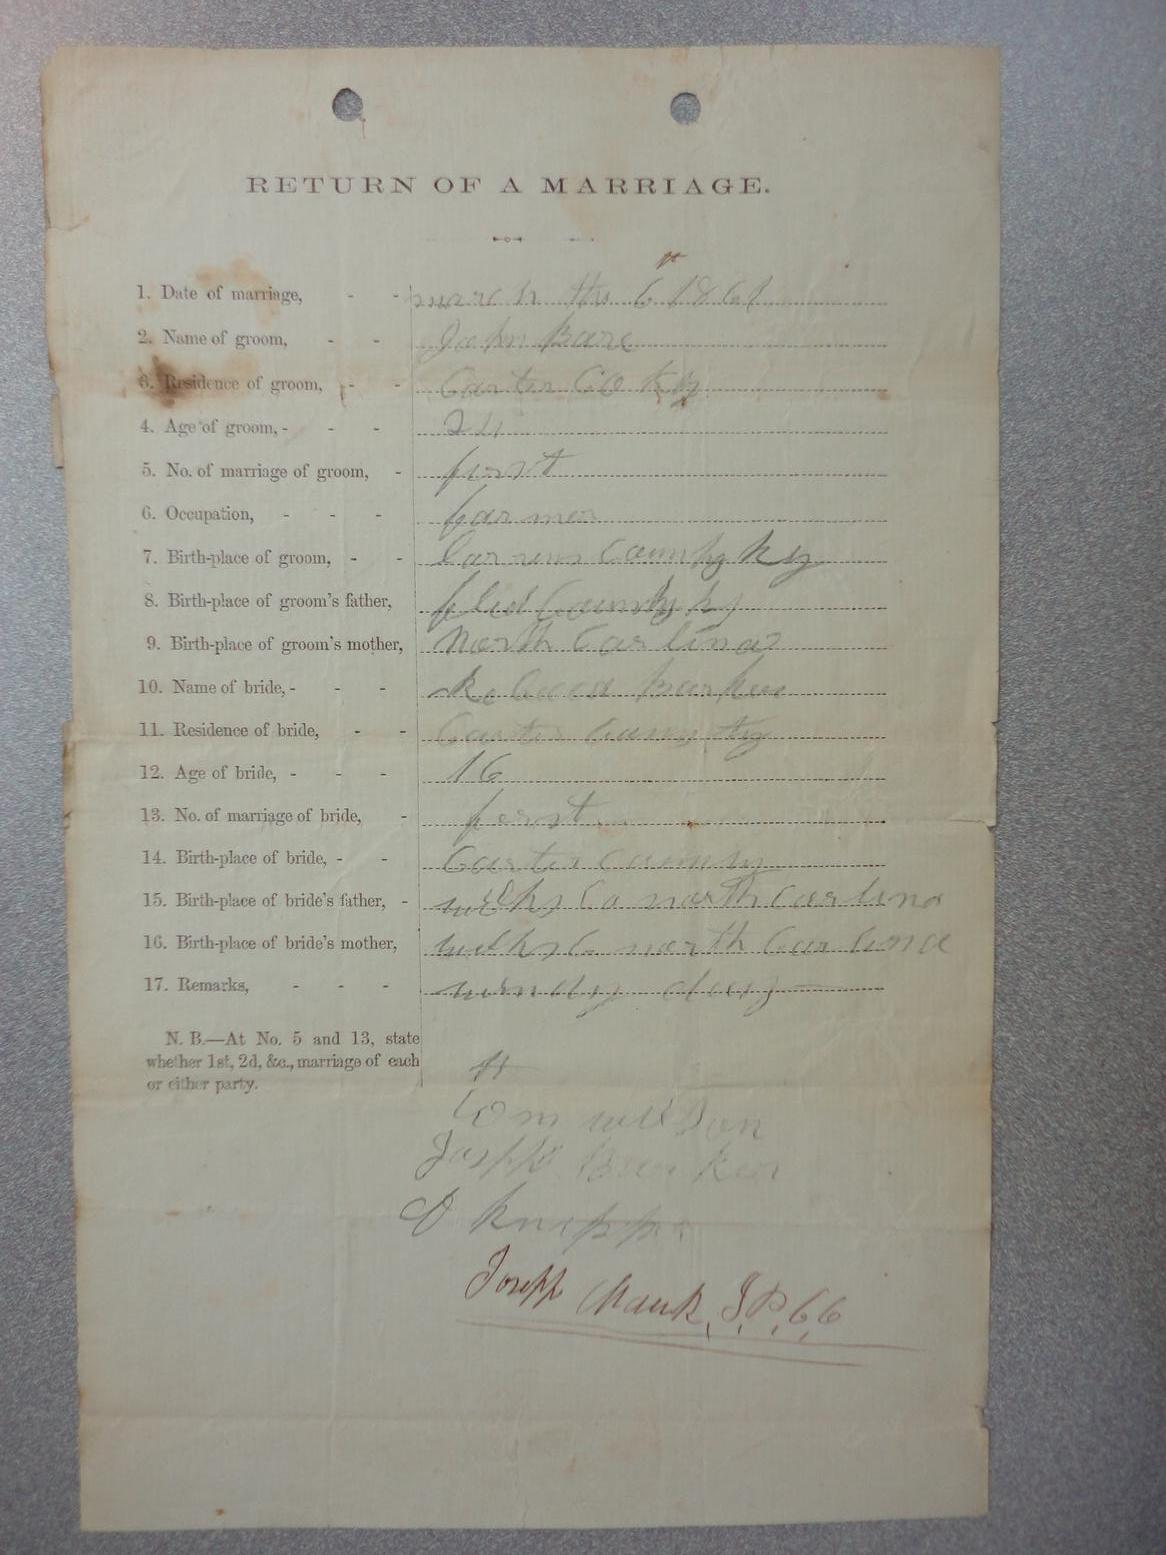 RETURN OF A MARRIAGE.
1. Date of marriage, - - march the 6 1861
2. Name of groom, - - John Bare
3. Residence of groom, - - Carter Co Ky
4. Age of groom, - - - 21
5. No. of marriage of groom, - first
6. Occupation, - - - farmer
7. Birth-place of groom, - - County Ky
8. Birth-place of groom's father, County Ky
9. Birth-place of groom's mother, North Carlina
10. Name of bride, - - - Barker
11. Residence of bride, - - Carter County
12. Age of bride, - - - 16
13. No. of marriage of bride, - ferst
14. Birth-place of bride, - - Carter County
15. Birth-place of bride's father, - wilks Co north Carlina
16. Birth-place of bride's mother, wilks C north Carlina
17. Remarks, - - - day
N. B.—At No. 5 and 13, state
whether 1st, 2d, &c., marriage of each
or either party.
Barker
Joseph Mauk, J, P, C C